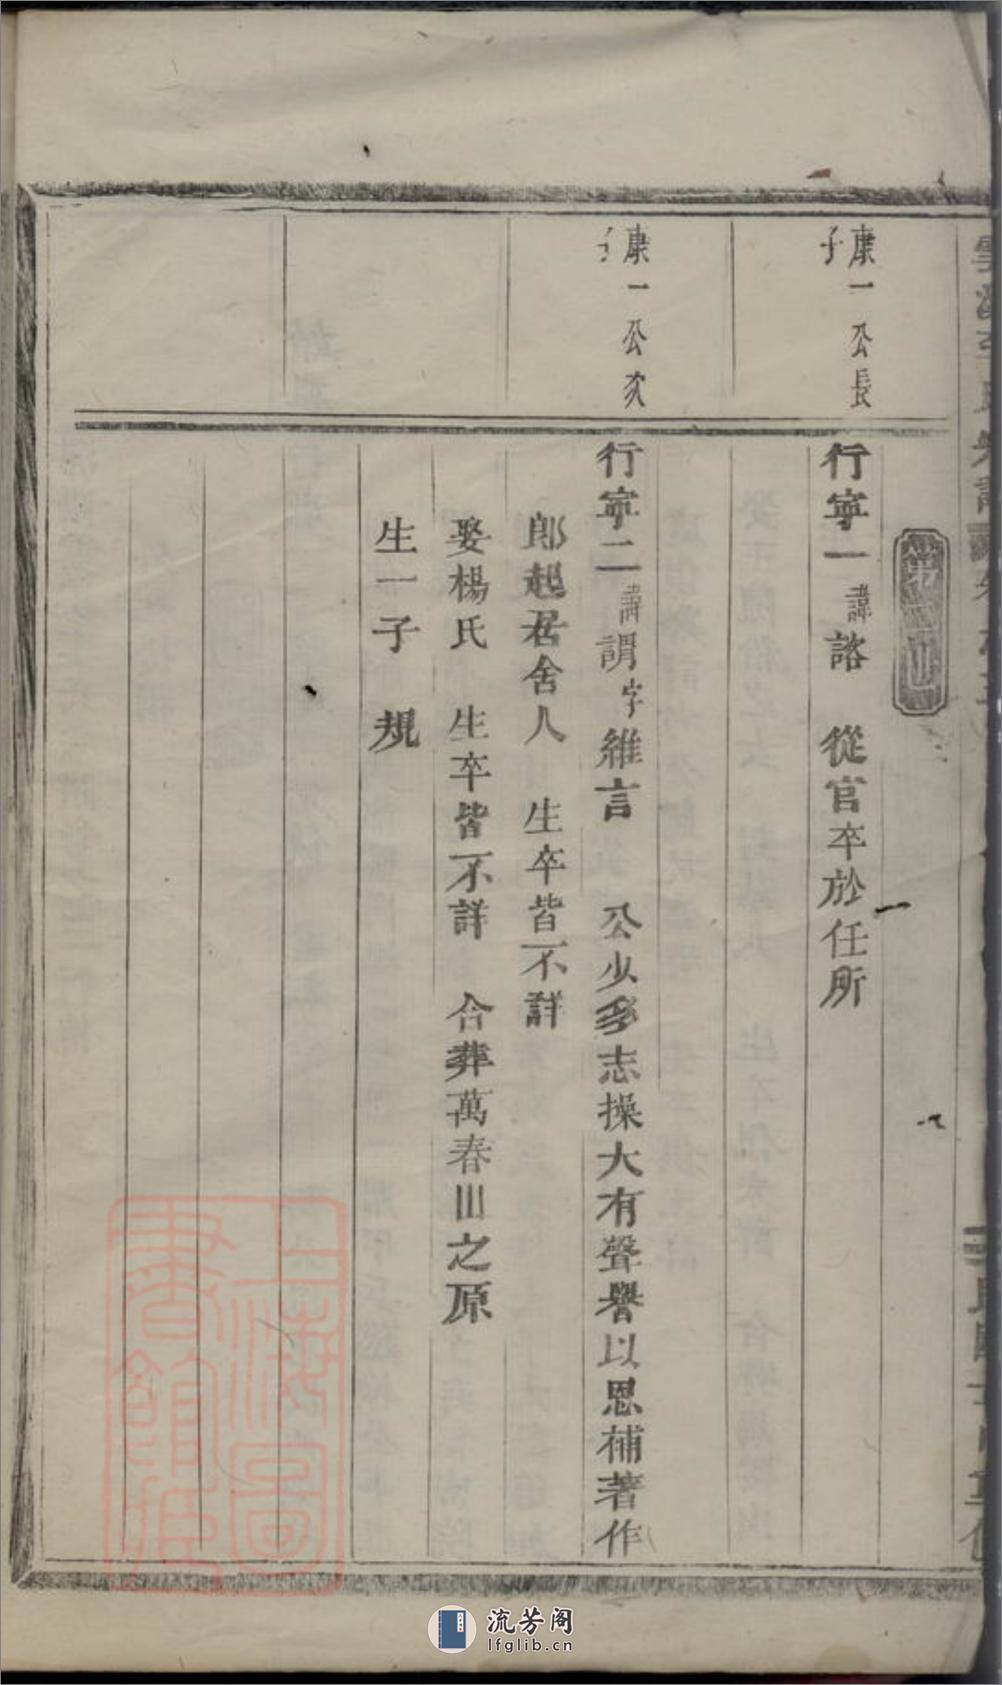 第四世
康一公長
子
行寧一 諱 諮 從官卒於任所
康一公次
子
行寧二 諱 謂 字 維言 公少多志操大有聲譽以恩補著作
郎起居舍人 生卒皆不詳
娶楊氏 生卒皆不詳 合葬萬春山之原
生一子 規
上海圖
書館藏
流芳阁
lfglib.cn